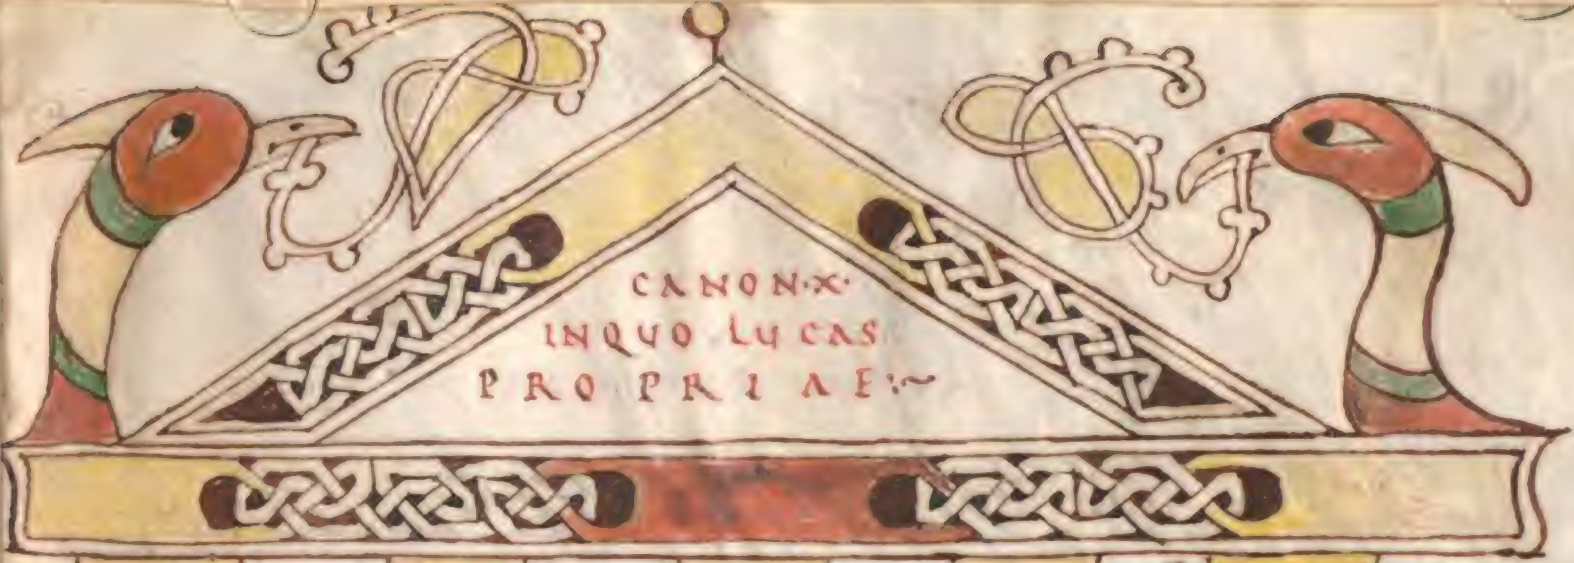 CANON·X·
INQUO LUCAS
PROPRIAE:~